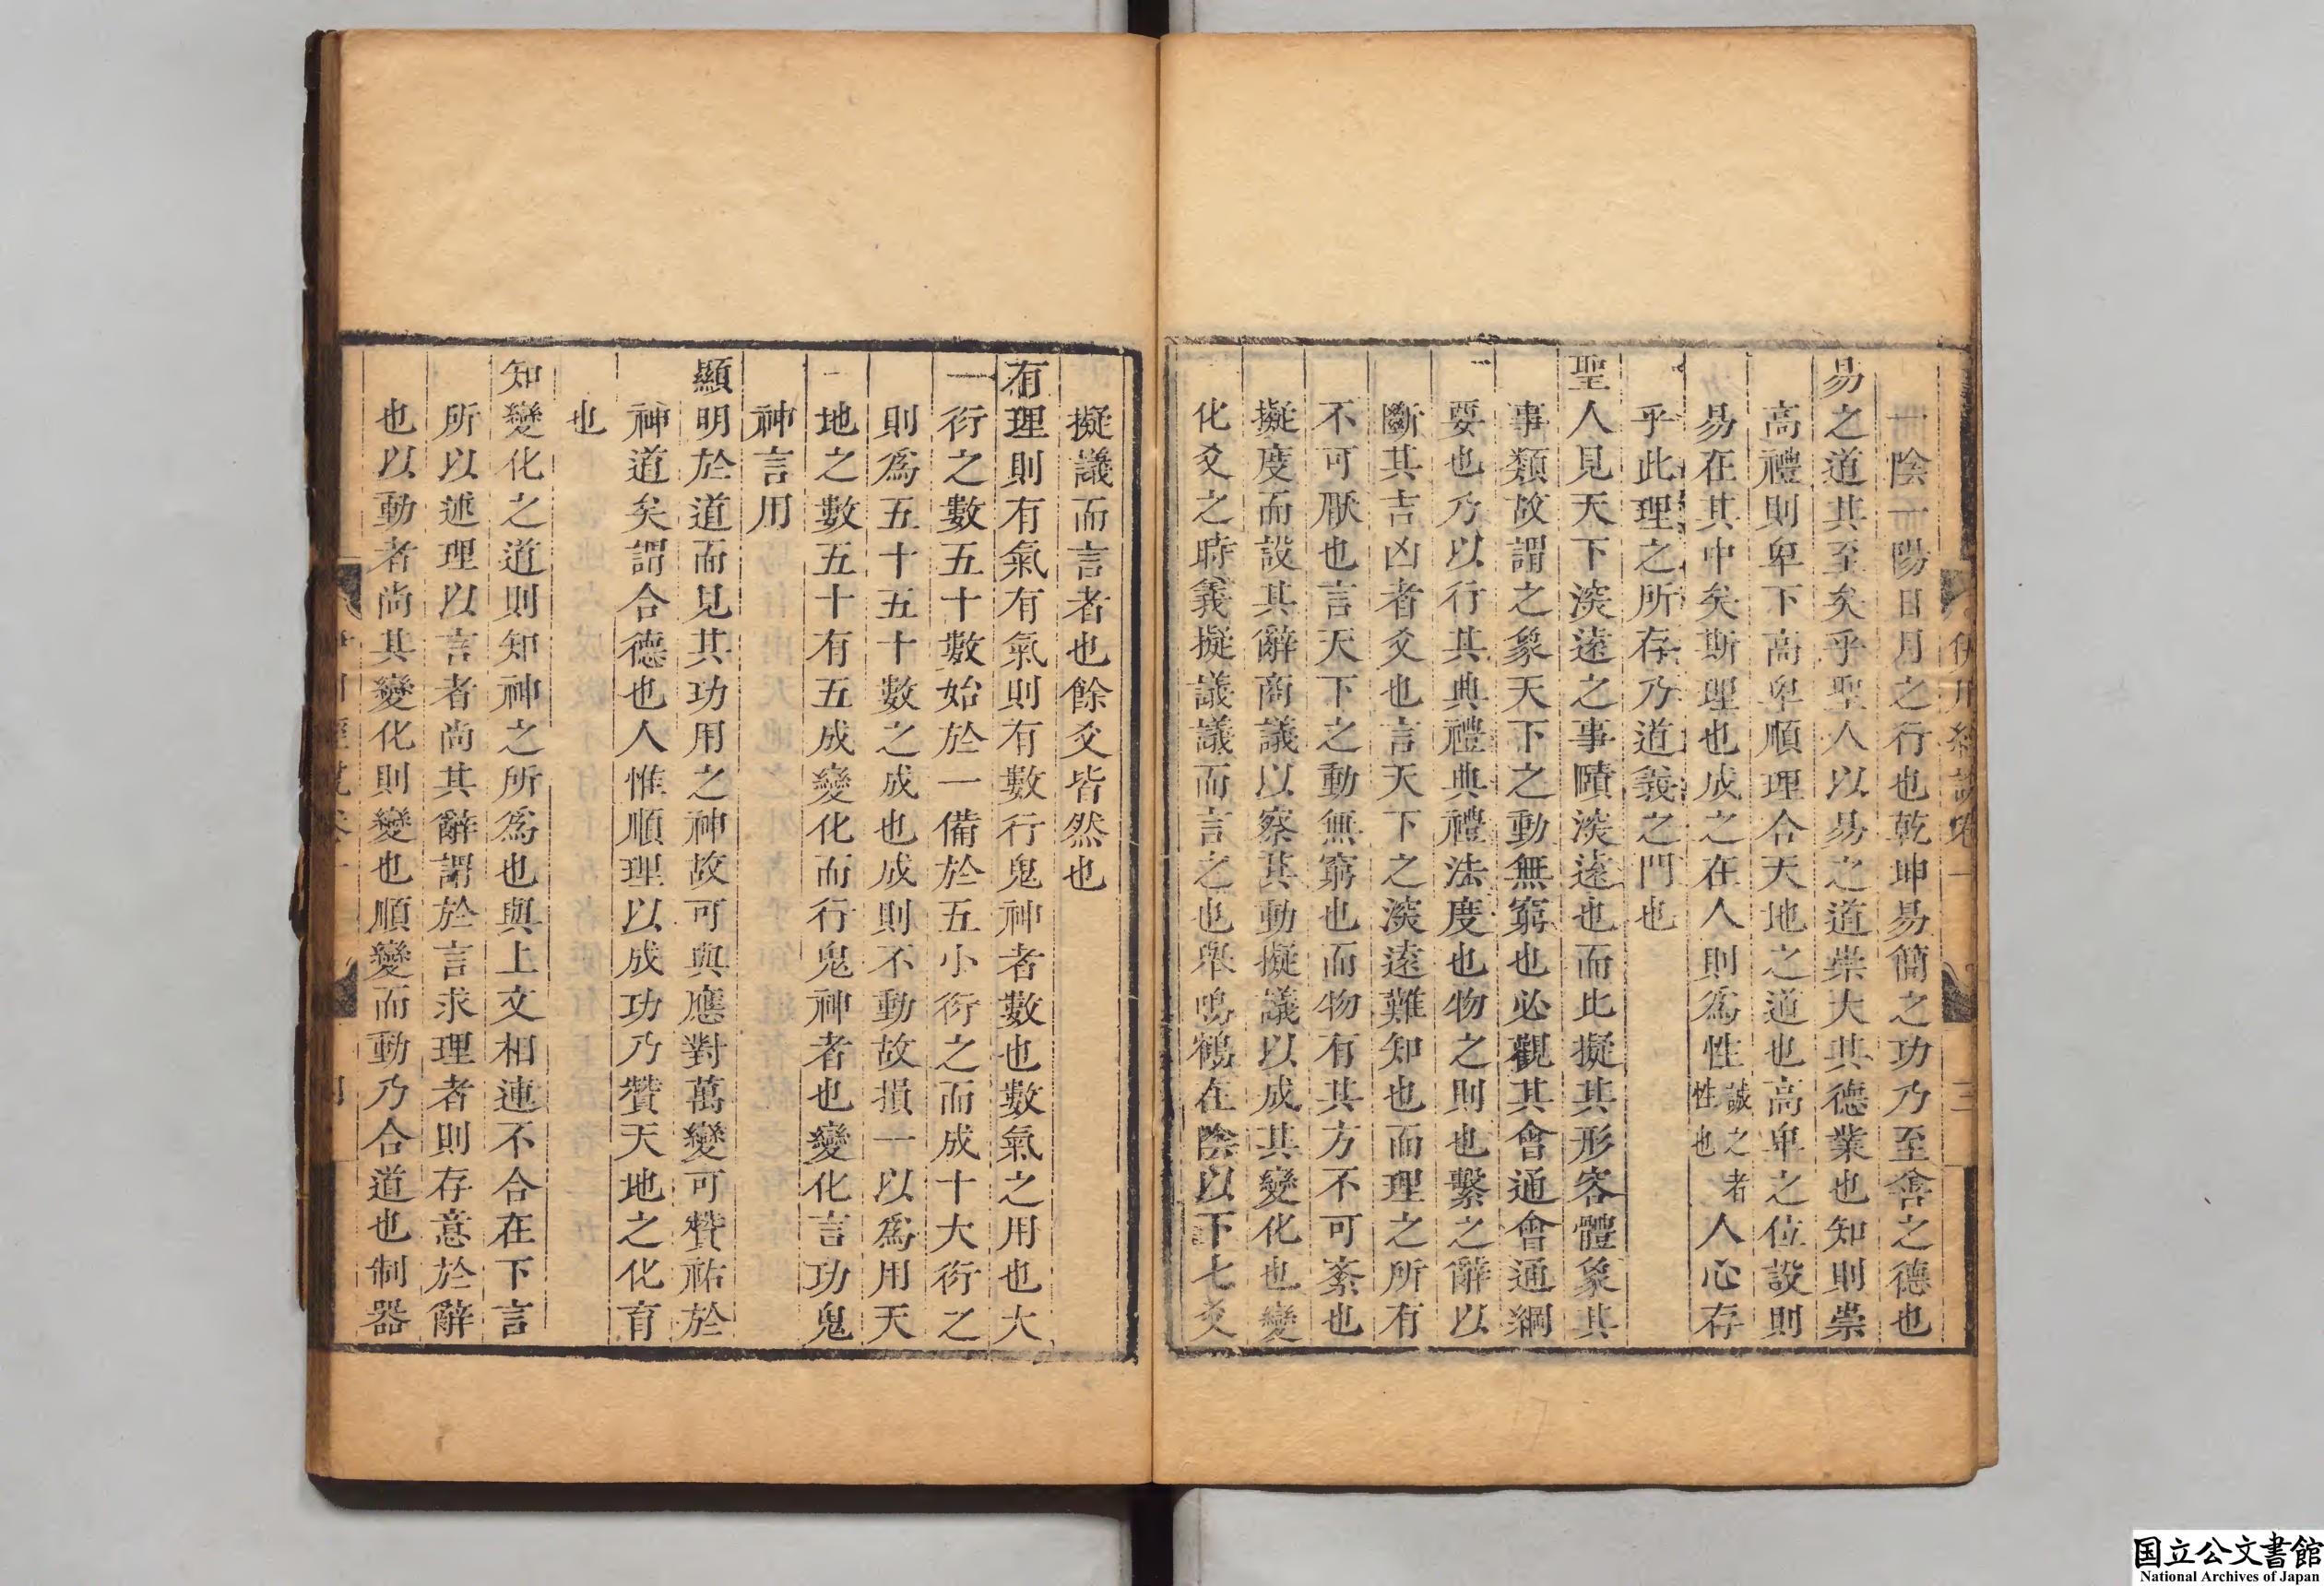 伊川經說卷一
三
一陰一陽日月之行也乾坤易簡之功乃至善之德也
易之道其至矣乎聖人以易之道崇大其德業也知則崇
高禮則卑下高卑順理合天地之道也高卑之位設則
易在其中矣斯理也成之在人則爲性誠之者性也人心存
乎此理之所存乃道義之門也
聖人見天下深遠之事賾深遠也而比擬其形容體象其
事類故謂之象天下之動無窮也必觀其會通會通綱
要也乃以行其典禮典禮法度也物之則也繫之辭以
斷其吉凶者爻也言天下之深遠難知也而理之所有
不可厭也言天下之動無窮也而物有其方不可紊也
擬度而設其辭商議以察其動擬議以成其變化也變
化爻之時義擬議議而言之也舉鳴鶴在陰以下七爻
擬議而言者也餘爻皆然也
有理則有氣有氣則有數行鬼神者數也數氣之用也大
衍之數五十數始於一備於五小衍之而成十大衍之
則爲五十五十數之成也成則不動故損一以爲用天
地之數五十有五成變化而行鬼神者也變化言功鬼
神言用
顯明於道而見其功用之神故可與應對萬變可贊祐於
神道矣謂合德也人惟順理以成功乃贊天地之化育
也
知變化之道則知神之所爲也與上文相連不合在下言
所以述理以言者尚其辭謂於言求理者則存意於辭
也以動者尚其變化則變也順變而動乃合道也制器
国立公文書館
National Archives of Japan